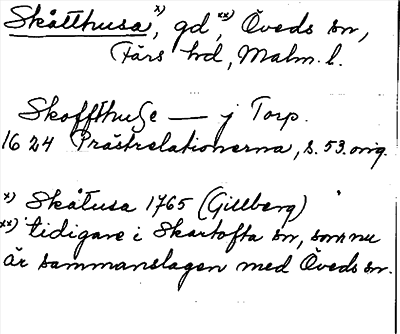 Skåtthusa x), gd, xx) Öveds sn,
Färs hd, Malm. l.
Skoffthuse — j Torp.
1624 Prästrelationerna, s. 53. orig.
x) Skåtusa 1765 (Gillberg)
xx) tidigare i Skartofta sn, som nu
är sammanslagen med Öveds sn.